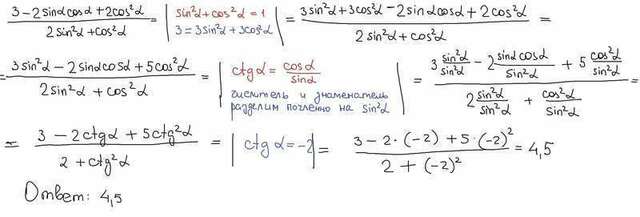 (3 − 2sinα cosα + 2cos²α)/(2sin²α + cos²α) = | sin²α + cos²α = 1 3 = 3sin²α + 3cos²α | = (3sin²α + 3cos²α − 2sinα cosα + 2cos²α)/(2sin²α + cos²α) =
= (3sin²α − 2sinα cosα + 5cos²α)/(2sin²α + cos²α) = | ctgα = cosα/sinα числитель и знаменатель разделим почленно на sin²α | = (3 sin²α/sin²α − 2 sinα cosα/sin²α + 5 cos²α/sin²α)/(2 sin²α/sin²α + cos²α/sin²α) =
= (3 − 2ctgα + 5ctg²α)/(2 + ctg²α) = | ctgα = −2 | = (3 − 2·(−2) + 5·(−2)²)/(2 + (−2)²) = 4,5
Ответ: 4,5